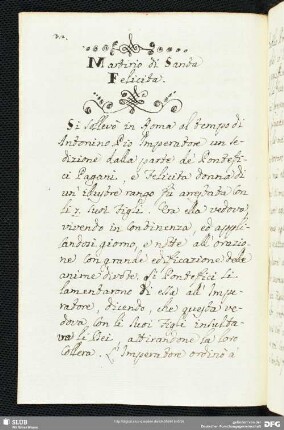 Martirio di Santa
Felicita.
Si sollevò in Roma al tempo di
Antonino Pio Imperatore un se-
dizione dalla parte de Pontefi-
ci Pagani, e Felicita donna di
un' illustre rango fù arrestata con
li 7. suoi Figli. Era ella vedova,
vivendo in Continenza, ed appli-
candosi giorno, e notte all' orazio-
ne con grande edificazione delle
anime divote. Li Pontefici si
lamentarono di ella all' Impe-
ratore, dicendo, che questa ve-
dova con li suoi Figli insulta-
va li Dei attirandone la loro
Collera. L'Imperatore ordinò à
SLUB
Wir führen Wissen.
DFG